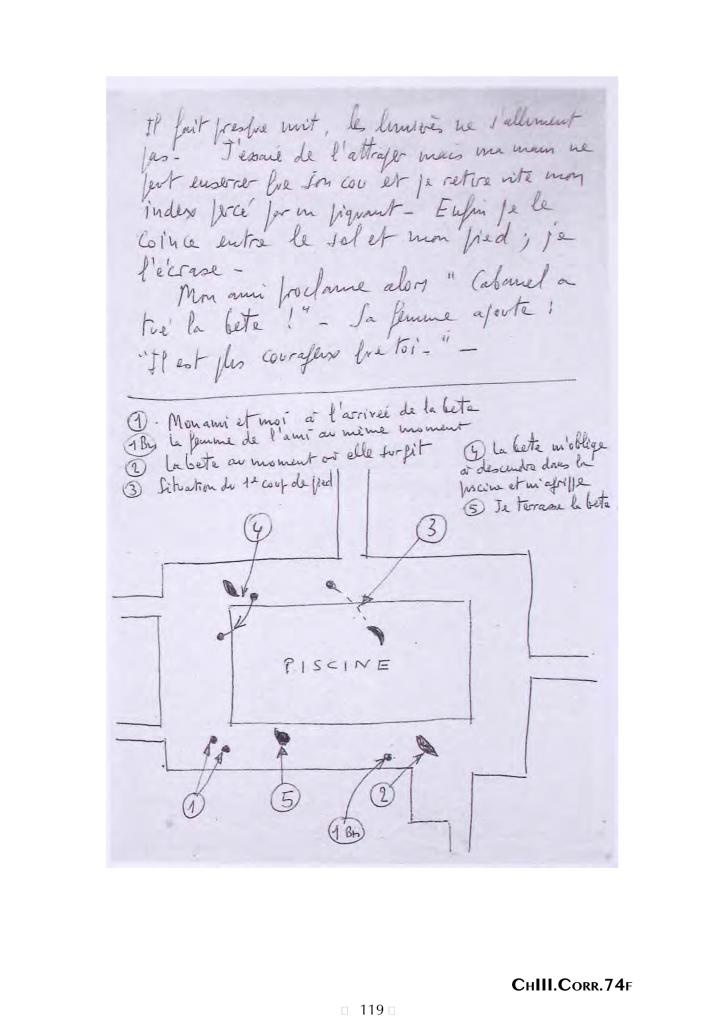 Il fait presque nuit, les lumières ne s'allument
pas - J'essaie de l'attraper mais ma main ne
peut enserrer que son cou et je retire vite mon
index percé par un piquant - Enfin je le
coince entre le sol et mon pied ; je
l'écrase -
Mon ami proclame alors " Cabanel a
tué la bete ! " - Sa femme ajoute :
"Il est plus courageux que toi - " -
① - Mon ami et moi à l'arrivée de la bete
1Bis La femme de l'ami au même moment
② La bete au moment où elle surgit
③ Situation du 1er coup de pied
④ La bete m'oblige
à descendre dans la
piscine et m'agriffe
⑤ Je terrasse la bete
4
3
PISCINE
1
5
1 Bis
2
CHIII.CORR.74F
119